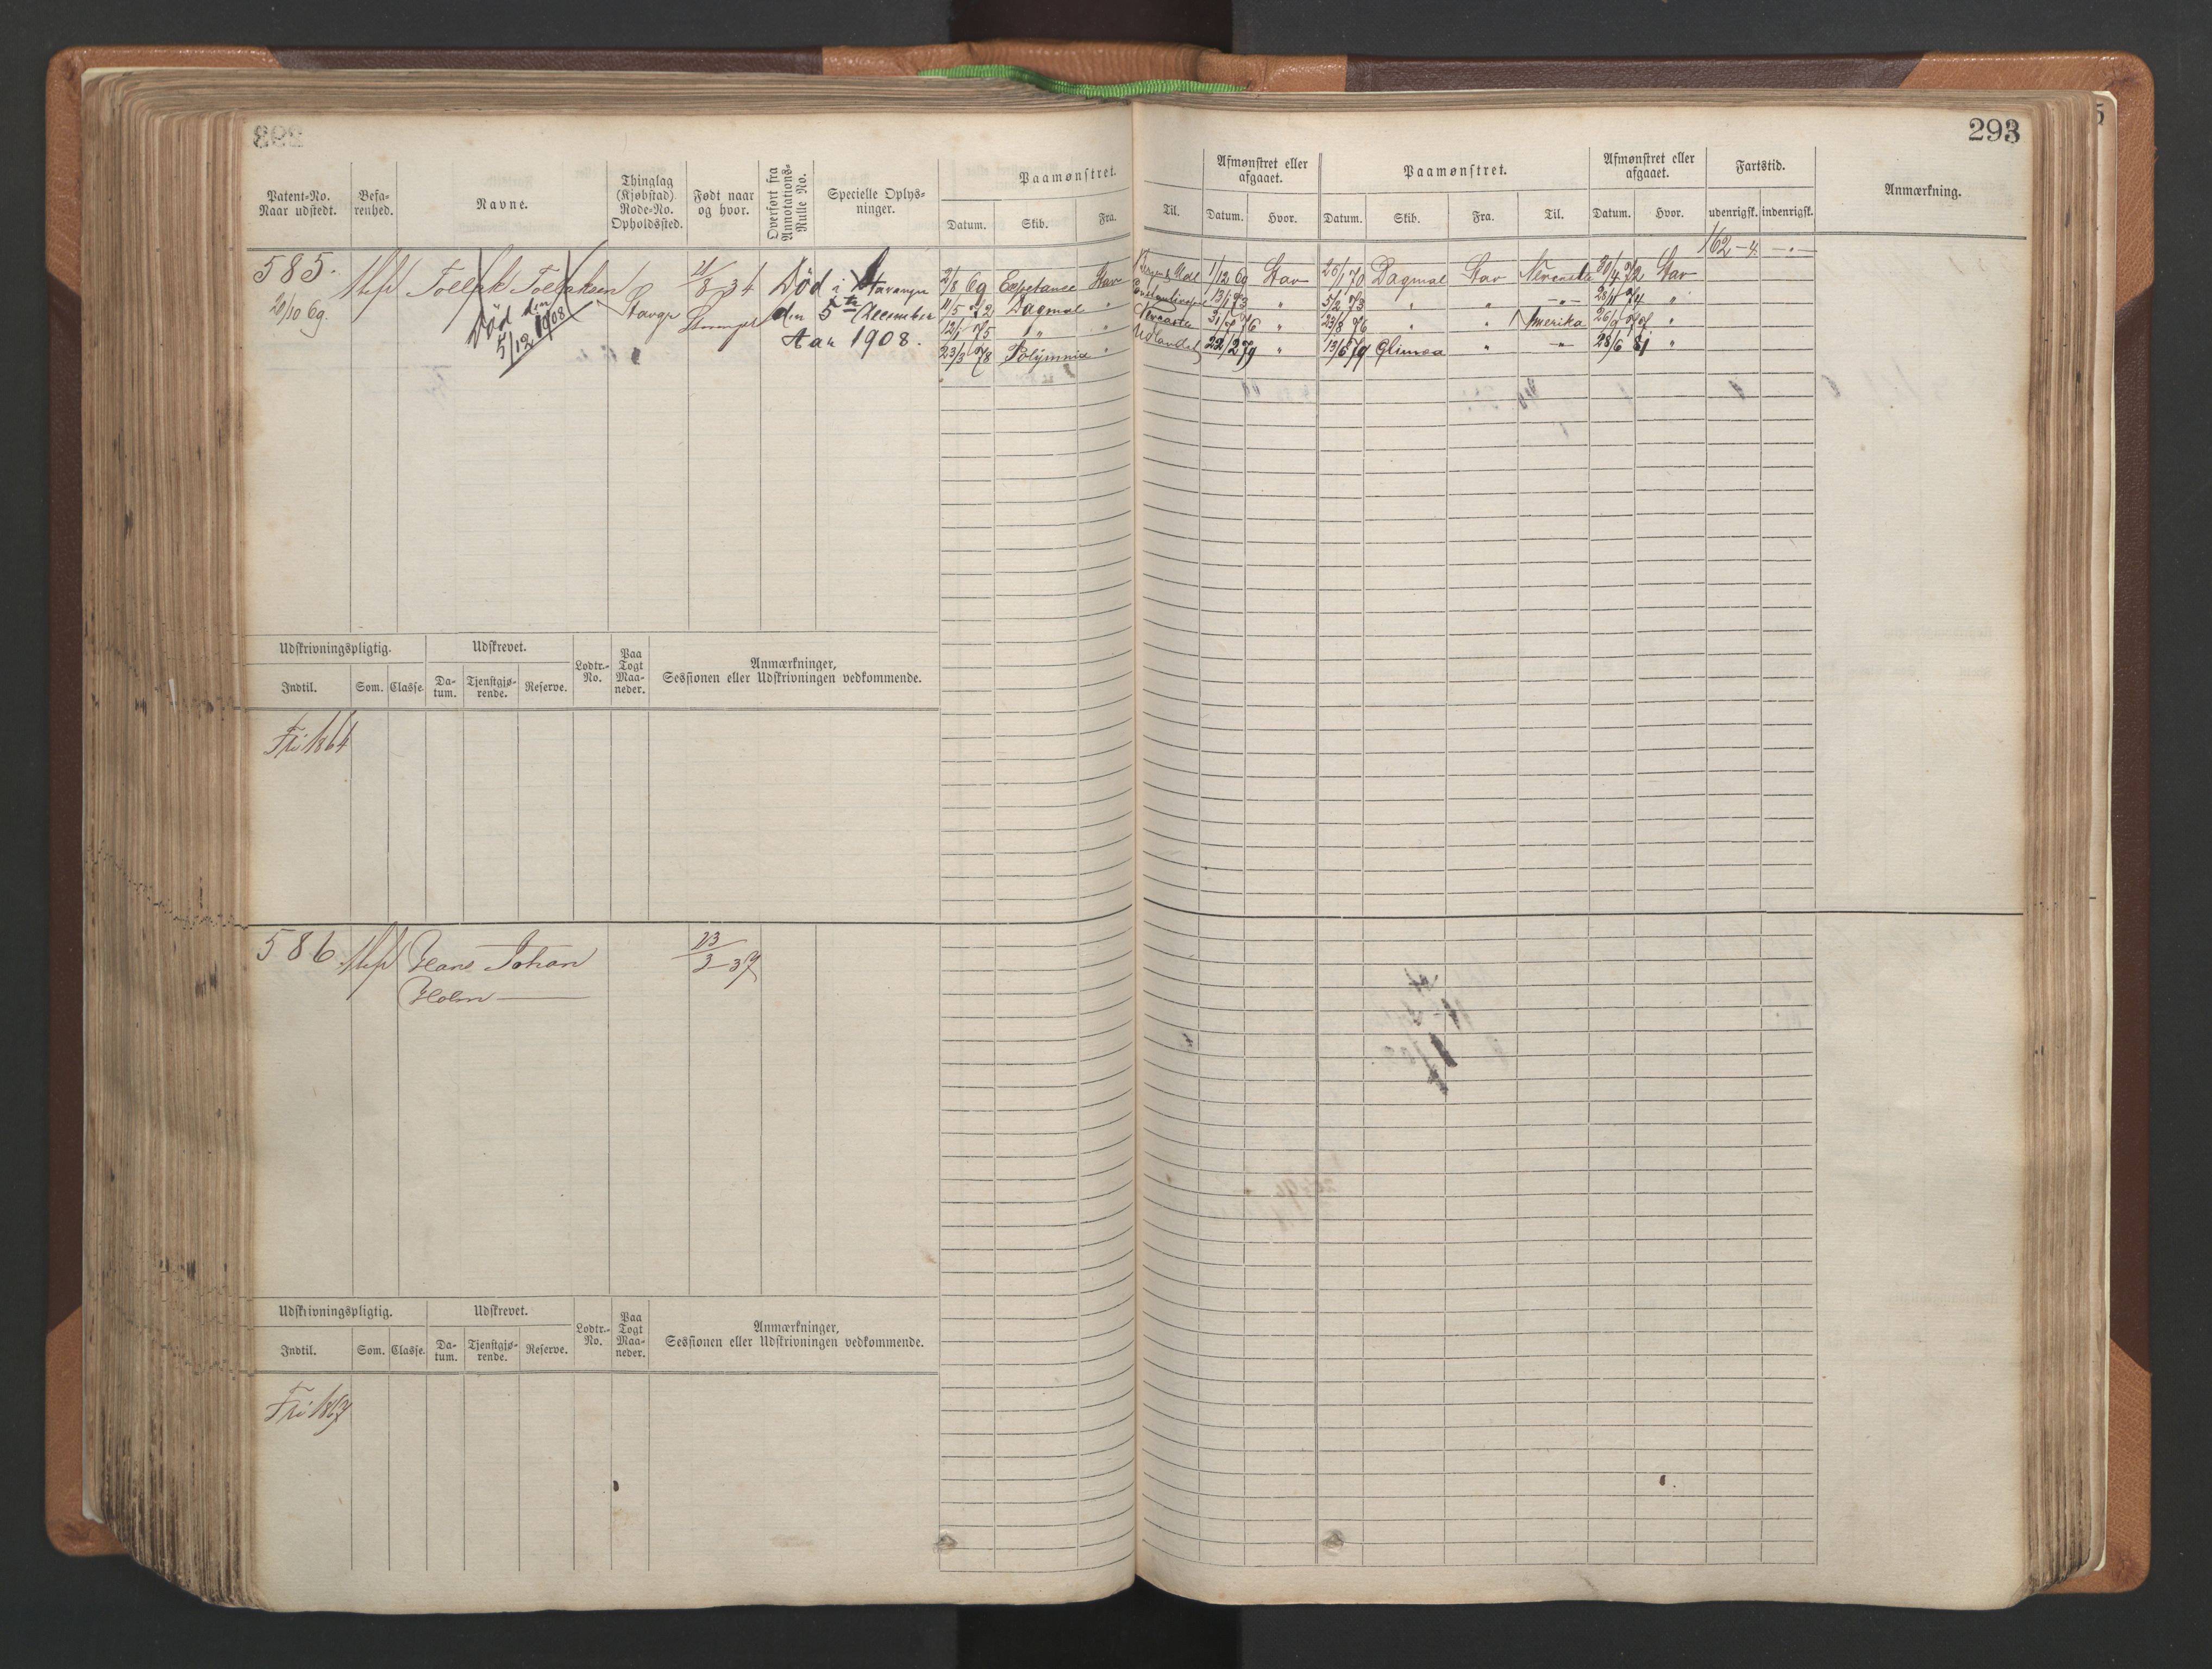 293
Patent-No.
Naar udstedt.
Befa-
renhed.
Navne.
Thinglag
(Kjøbstad)
Rode-No.
Opholdssted.
Født naar
og hvor.
Overført fra
Annotations-
Rulle No.
Specielle Oplys-
ninger.
Paamønstret.
Datum.
Skib.
Fra.
Til.
Afmønstret eller
afgaaet.
Datum.
Hvor.
Paamønstret.
Datum.
Skib.
Fra.
Til.
Afmønstret eller
afgaaet.
Datum.
Hvor.
Fartstid.
udenrigsk.
indenrigsk.
Anmærkning.
162-4
585.
20/10 69.
Død den
5/12 1908
Stavgr
21/8 34
Død i Stavanger
den 5te December
Aar 1908.
2/8 69 Esperance Stav
1/12 69 Stav 26/1 70 Dagmar Stav 30/4 72 Stav
11/5 72 Dagmar "
13/1 73 " 5/2 73 " " -"- 28/11 74 "
12/1 75 " "
31/7 76 " 23/8 76 " " Amerika 26/9 77 "
23/3 78 Polymnia " Udlandet
22/2 79 " 13/5 79 " -"- 28/6 81 "
Udskrivningspligtig.
Udskrevet.
Lodtr.-
No.
Paa
Togt
Maa-
neder.
Anmærkninger,
Sessionen eller Udskrivningen vedkommende.
Indtil.
Som.
Classe.
Da-
tum.
Tjenstgjø-
rende.
Reserve.
Fri 1864
586
Hans Johan
Holm
23/3 37
Udskrivningspligtig.
Udskrevet.
Lodtr.-
No.
Paa
Togt
Maa-
neder.
Anmærkninger,
Sessionen eller Udskrivningen vedkommende.
Indtil.
Som.
Classe.
Da-
tum.
Tjenstgjø-
rende.
Reserve.
Fri 1867